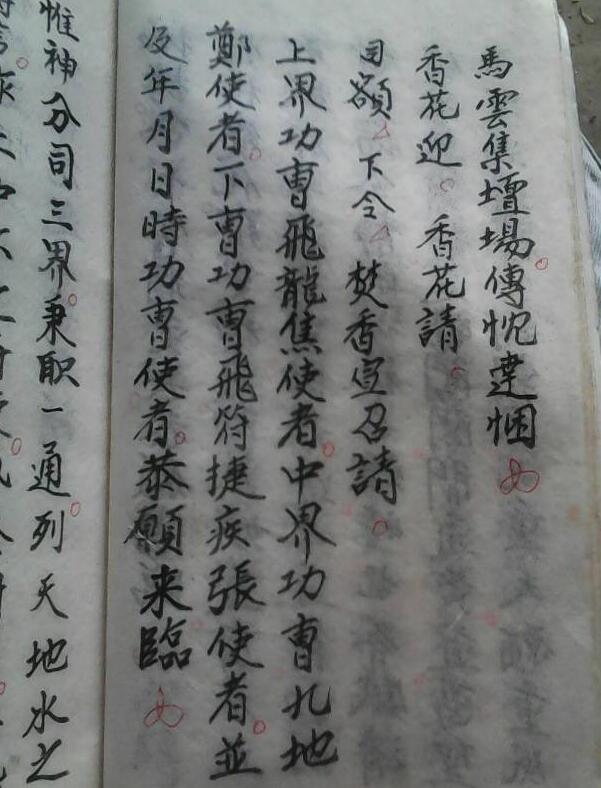 馬雲集壇場傳忱達悃
香花迎 香花請
司額 下令 焚香宣召請
上界功曹飛龍焦使者中界功曹九地
鄭使者下曹功曹飛符捷疾張使者並
及年月日時功曹使者恭願来臨
惟神分司三界秉职一通列天地水之